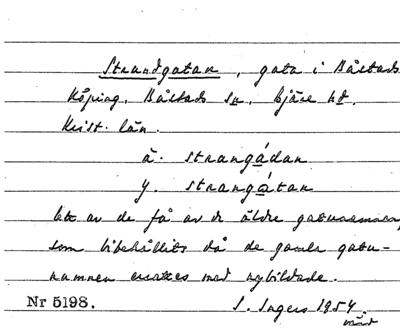 Strandgatan, gata i Båstads
köping, Båstads sn, Bjäre hd.
Krist. län.
ä. strangádan
y. strangátan
Ett av de få av de äldre gatunamnen,
som bibehållits då de gamla gatu-
namnen ersattes med nybildade.
Nr 5198.
I. Ingers 1954.